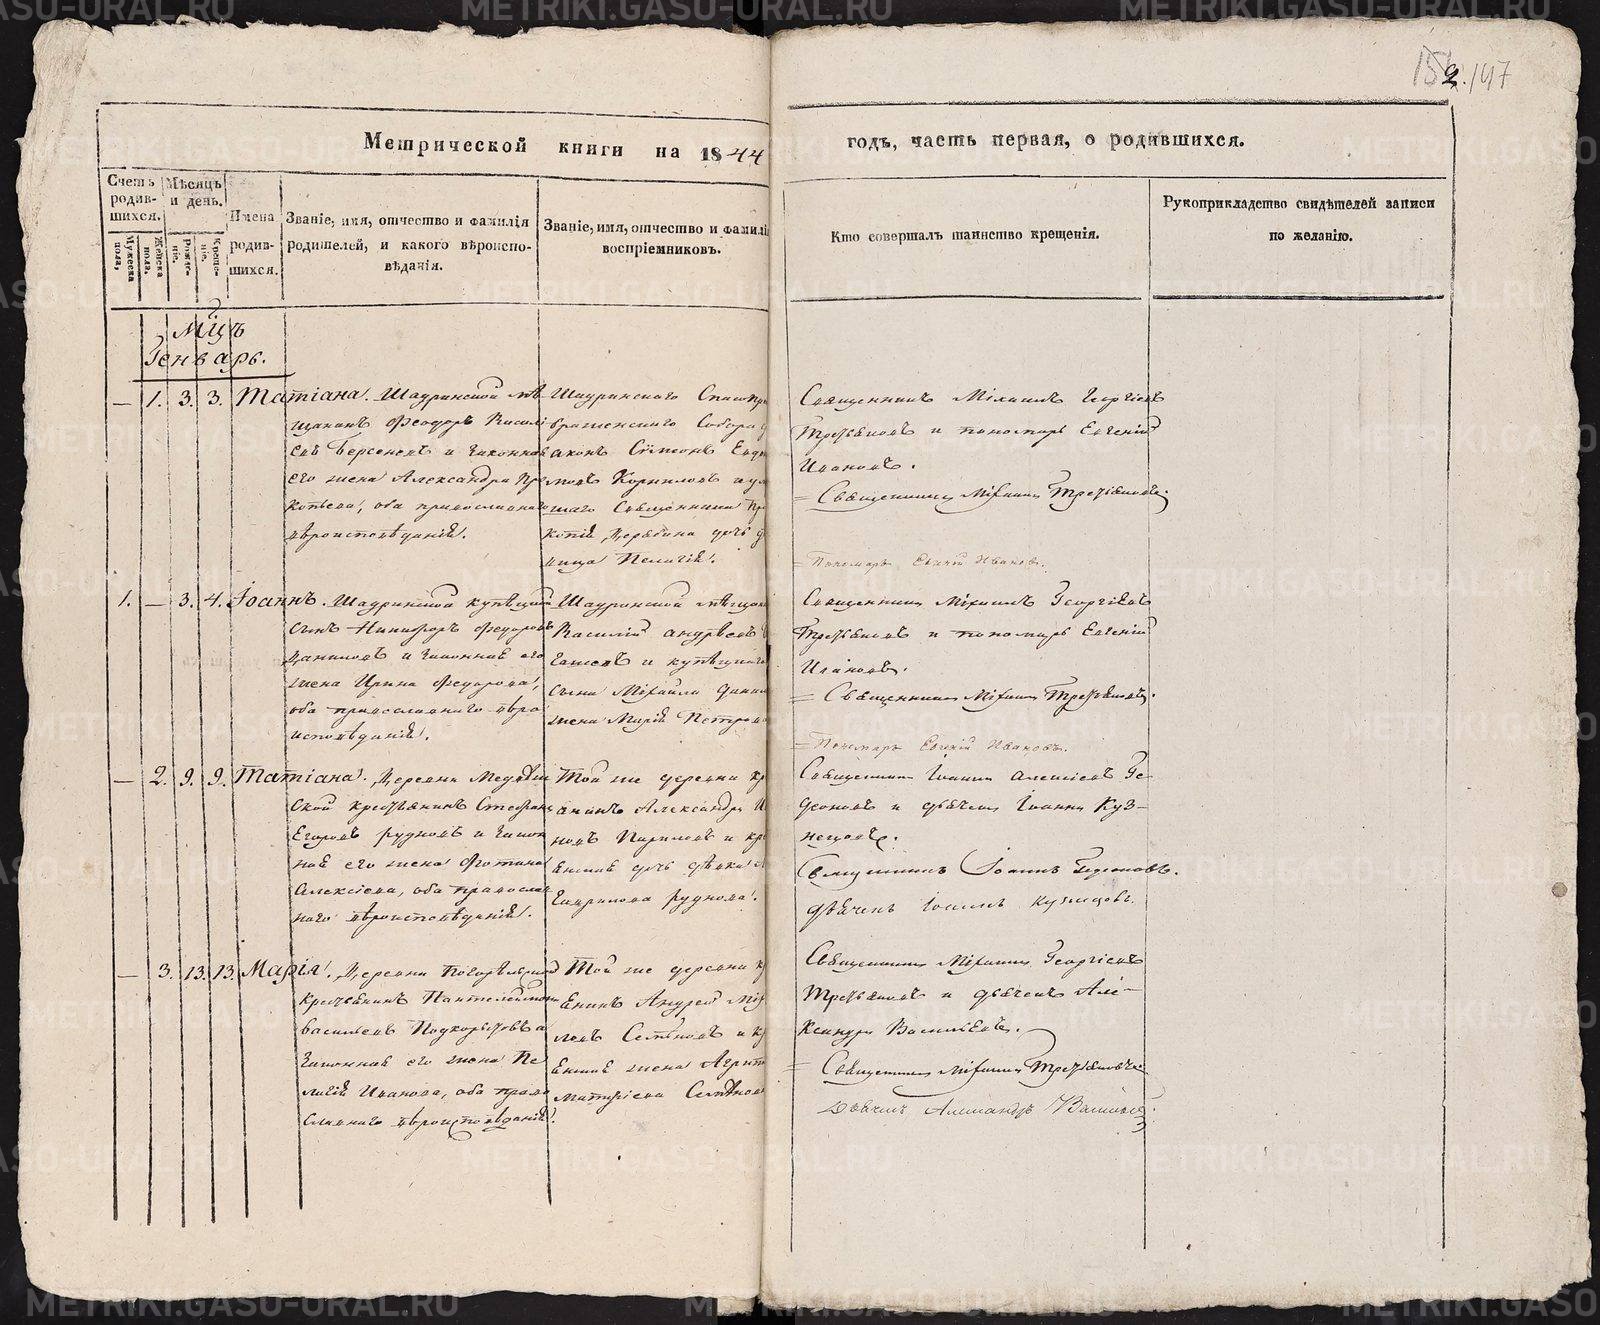 152. 147
Метрической книги на 1844 годъ, часть первая, о родившихся.
Счетъ родив-
шихся.
Мужеска пола,
Женска пола.
Мѣсяцъ и день.
Рожде-
ніе.
Креще-
ніе.
Имена
родив-
шихся.
Званіе, имя, отчество и фамилія
родителей, и какого вѣроиспо-
вѣданія.
Званіе, имя, отчество и фамилі
воспріемниковъ.
Кто совершалъ таинство крещенія.
Рукоприкладство свидѣтелей записи
по желанію.
Мцъ
Генварь.
— 1. 3. 3. Татіана. Шадринской мѣ
щанинъ Феодоръ Василі
евъ Берсеневъ и законная
его жена Александра Про
копьева, оба православнаго
вѣроисповѣданія.
Шадринскаго Спасопр
ображенскаго Собора д
іаконъ Сѵмеонъ
Корниловъ и ум
шаго Священника Пр
копія Дерябина дочь д
вица Пелагія.
Священникъ Михаилъ Георгіевъ
Третьяковъ и пономарь Евгеній
Ивановъ.
= Священникъ Михаилъ Третьяковъ.
= Пономарь Евгеній Ивановъ.
1. — 3. 4. Іоаннъ. Шадринской купецкой
сынъ Никифоръ Федоровъ
Даниловъ и законная его
жена Ирина Федорова,
оба православнаго вѣро
исповѣданія.
Шадринской мѣщани
Василій Андреевъ
и купецкаго
сына Михаила Данил
жена Марія Петрова
Священникъ Михаилъ Георгіевъ
Третьяковъ и пономарь Евгеній
Ивановъ.
= Священникъ Михаилъ Третьяковъ.
= Пономарь Евгеній Ивановъ.
— 2. 9. 9. Татіана. Деревни Медвѣж
ской крестьянинъ Стефанъ
Егоровъ Рудновъ и закон
ная его жена Фотина
Алексіева, оба православ
наго вѣроисповѣданія.
Той же деревни кр
янинъ Александръ И
новъ и кр
янская дочь дѣвка
Гаврилова Руднова.
Священникъ Іоаннъ Алексіевъ Ге-
деоновъ и дьячекъ Іоаннъ Куз-
нецовъ.
Священникъ Іоаннъ Гедеоновъ.
Дьячекъ Іоаннъ Кузнецовъ.
— 3. 13. 13. Марія. Деревни Погорѣльской
крестьянинъ Пантелеймонъ
Васильевъ Подкорытовъ и
законная его жена Пе
лагія Иванова, оба право
славнаго вѣроисповѣданія.
Той же деревни к
янинъ Андрей Мих
левъ Семеновъ и к
янская жена Агрип
Матфіева Семенов
Священникъ Михаилъ Георгіевъ
Третьяковъ и дьячекъ Але-
ксандръ Васильевъ.
= Священникъ Михаилъ Третьяковъ
Дьячекъ Александръ Васильев
METRIKI.GASO-URAL.RU